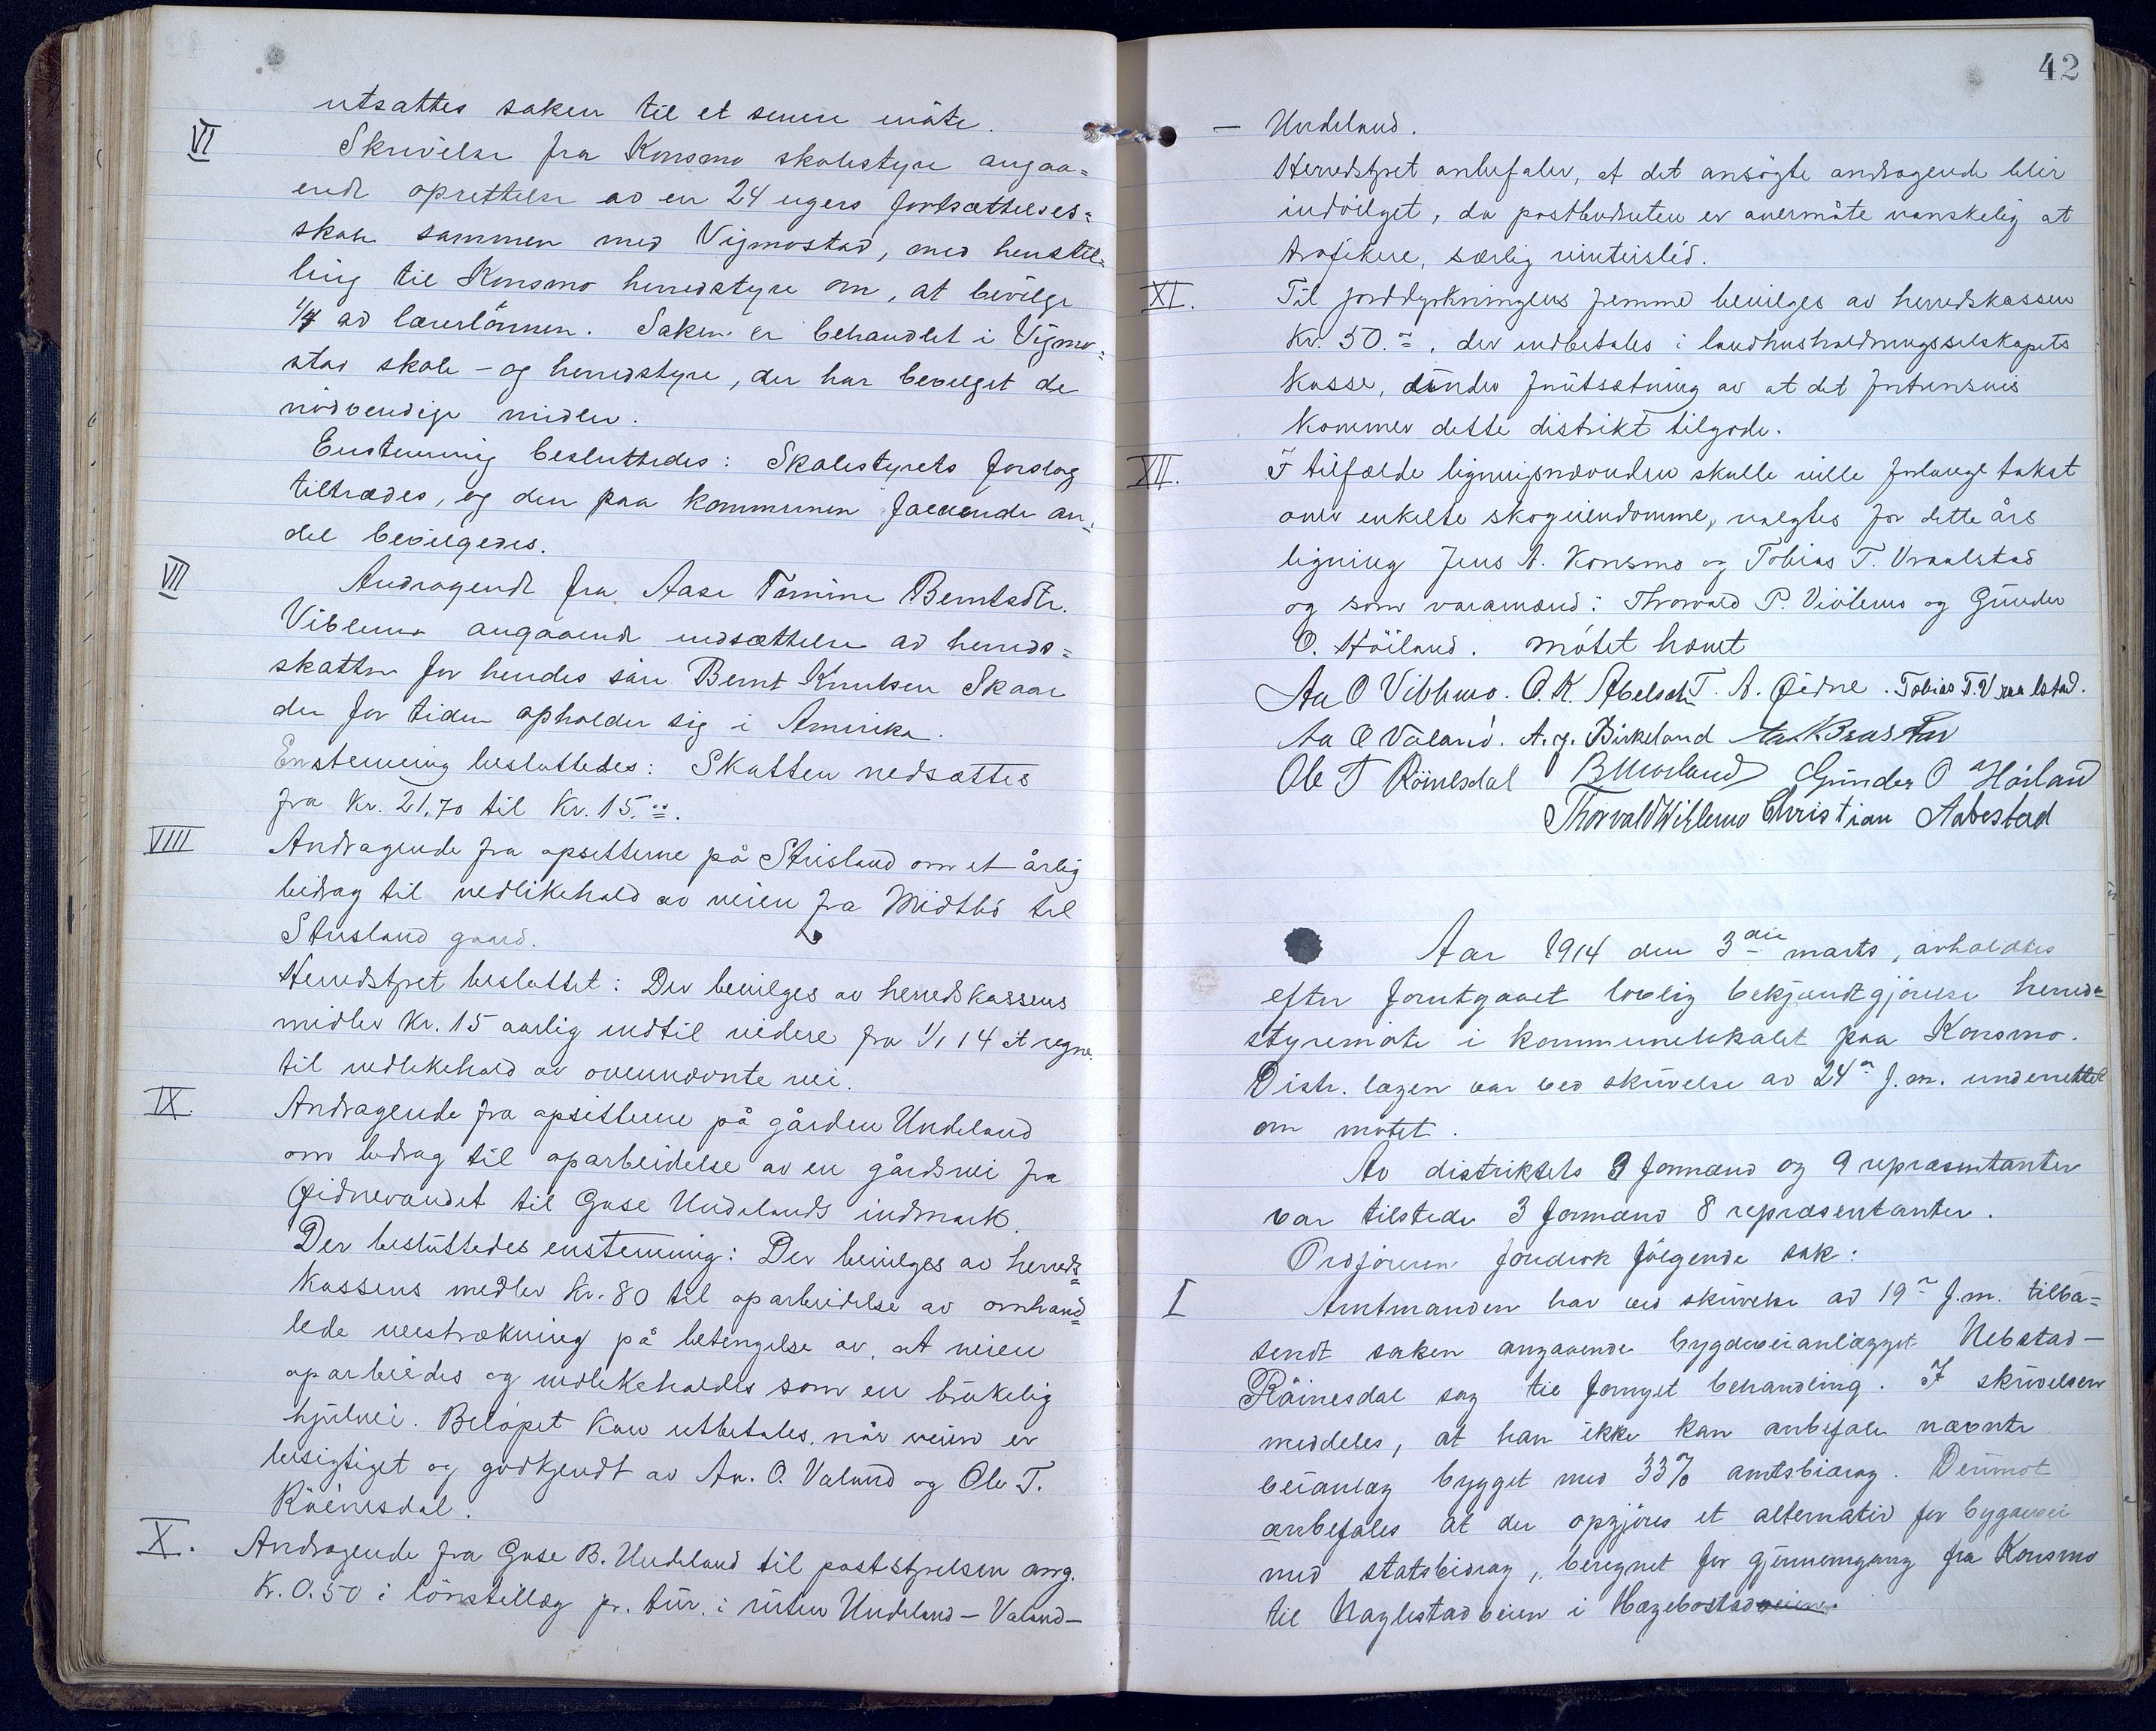 utsattes saken til et senere möte.
VI
Skrivelse fra Konsmo skolestyre angaa=
ende oprettelse av en 24 ugers fortsættelses=
skole sammen med Vigmostad, med henstil=
ling til Konsmo herredstyre om, at bevilge
1/4 av lærerlönnen. Saken er behandlet i Vigmo=
stad skole - og herredstyre, der har bevilget de
nödvendige midler.
Enstemmig besluttedes: Skolestyrets forslag
tiltrædes, og den paa kommunen faldende an=
del bevilgedes.
VII
Andragende fra Aase Tomine Berntsdtr.
Viblemo angaaende nedsættelse av herreds=
skatten for hendes sön Bernt Knutsen Skaar
der for tiden opholder sig i Amerika.
Enstemmig besluttedes: Skatten nedsættes
fra Kr. 21,70 til Kr. 15.
VIIII
Andragende fra opsitterne på Stusland om et årlig
bidrag til vedlikehold av veien fra Midtbö til
Stusland gaard.
Herredstyret besluttet: Der bevilges av herredskassens
midler Kr. 15 aarlig indtil videre fra 1/1 14 at regne
til vedlikehold av ovennævnte vei.
IX.
Andragende fra opsitterne på gården Undeland
om bedrag til oparbeidelse av en gårdsvei fra
Øidnevandet til Guse Undelands indmark.
Der besluttedes enstemmig: Der bevilges av herreds=
kassens midler Kr. 80 til oparbeidelse av omhand=
lede veistrækning på betingelse av, at veien
oparbeides og vedlikeholdes som en brukelig
hjulvei. Belöpet kan utbetales, når veien er
besigtiget og godkjendt av Aa. O. Valand og Ole T.
Röinesdal.
X.
Andragende fra Guse B. Undeland til poststyrelsen ang.
Kr. 0.50 i lönstillæg pr. tur. i ruten Undeland - Valand -
42
- Undeland.
Herredstyret anbefaler, at det ansögte andragende blir
indvilget, da postbudruten er overmåte vanskelig at
trafikere, særlig vinterstid.
XI.
Til jorddyrkningens fremme bevilges av herredskassen
Kr. 50.-, der indbetales i landhusholdningsselskapets
kasse, under forutsætning av at det fortrinsvis
kommer dette distrikt tilgode.
XII.
I tilfælde ligningsnævnden skulle ville forlange takst
over enkelte skogeiendomme, valgtes for dette års
ligning Jens A. Konsmo og Tobias T. Vraalstad
og som varamænd: Thorvald P. Viblemo og Gunder
O. Höiland. Mötet hævet
Aa O Viblemo. O. K. Abelseth T. A. Øidne. Tobias T. Vraalstad.
Aa O Valand. A. G. Birkeland
Ole T Röinesdal B Undeland Gunder O Höiland
Thorvald Wiblemo Christian Aabestad
Aar 1914 den 3die marts, avholdtes
efter forutgaaet lovlig bekjendtgjörelse herreds=
styremöte i kommunelokalet paa Konsmo.
Distr. lægen var ved skrivelse av 24de f.m. underrettet
om mötet.
Av distriktets 3 formænd og 9 repræsentanter
var tilstede 3 formænd 8 repræsentanter.
Ordföreren foredrok fölgende sak:
I
Amtmanden har ved skrivelse av 19de f.m. tilba=
sendt saken angaaende bygdeveianlægget Nebstad -
Röinesdal sog til fornyet behandling. I skrivelsen
meddeles, at han ikke kan anbefale nævnte
veianlæg bygget med 33% amtsbidrag. Derimot
anbefales at der opgjöres et alternativ for bygdevei
med statsbidrag, beregnet for gjennemgang fra Konsmo
til Naglestadveien i Hægebostad